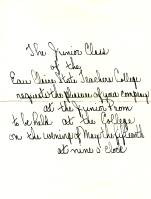 The Junior Class
of the
Eau Claire State Teachers College
requests the pleasure of your company
at the Junior Prom
to be held at the College
on the evening of May the
at nine o'clock